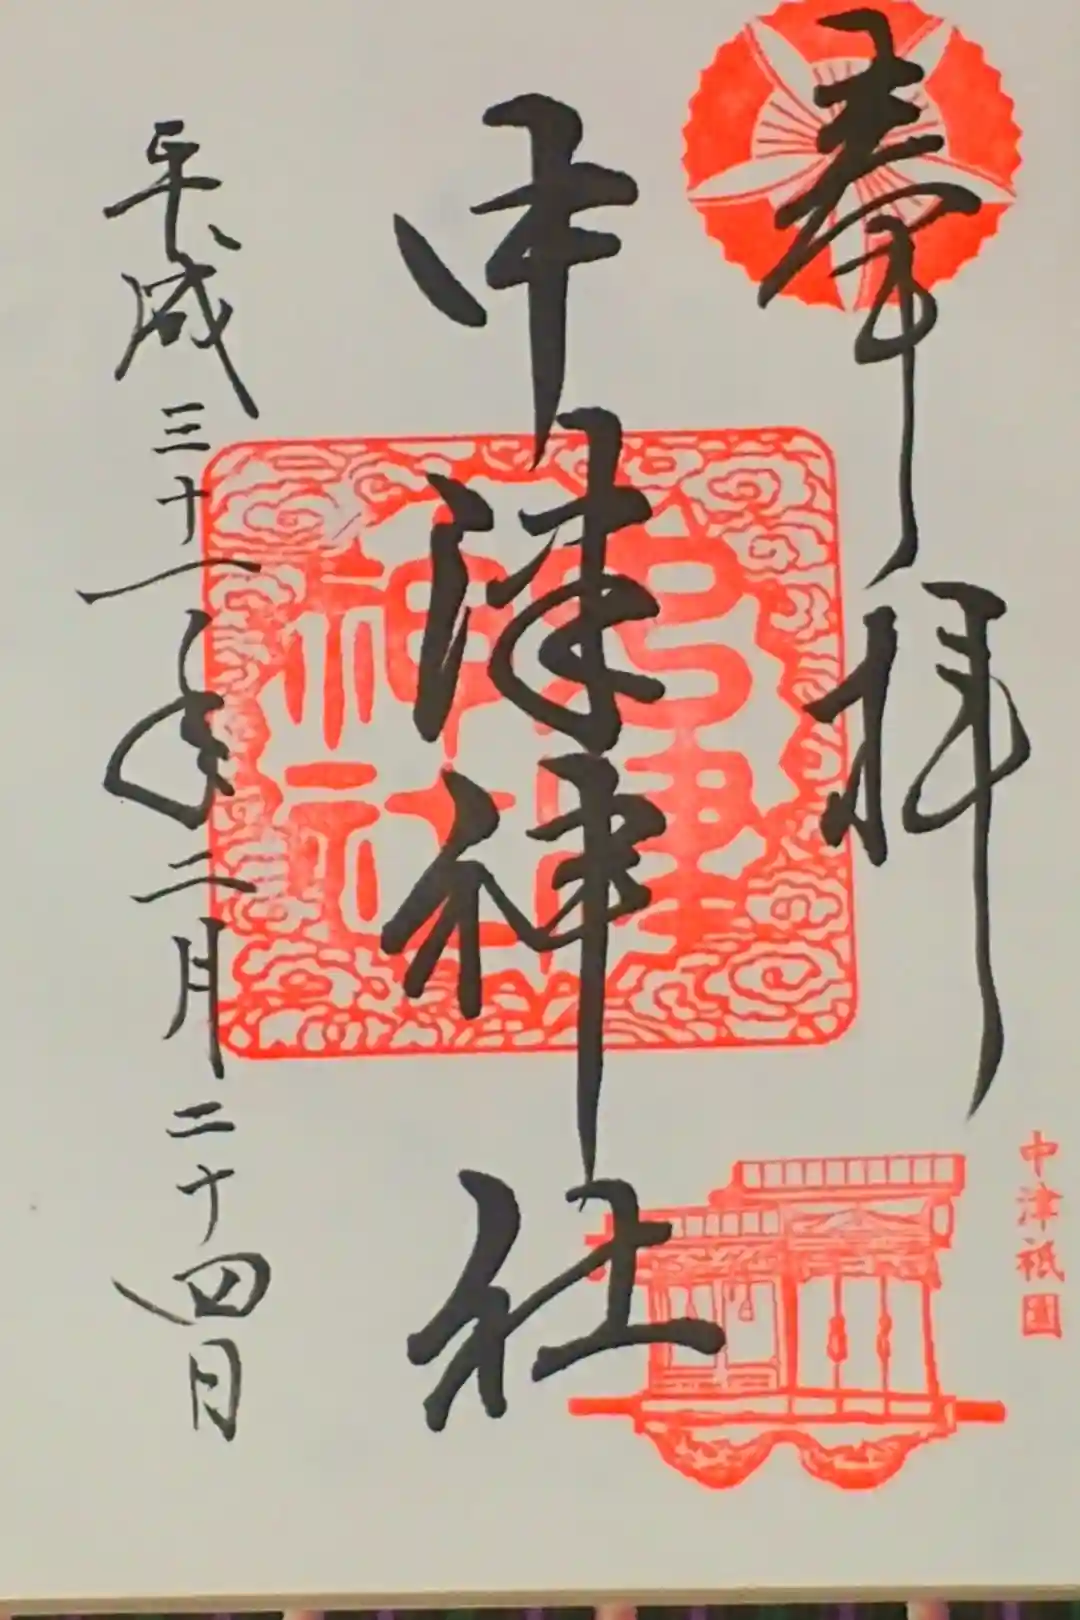 奉拝
中津神社
平成三十一年二月二十四日
中津神社
中津祗園